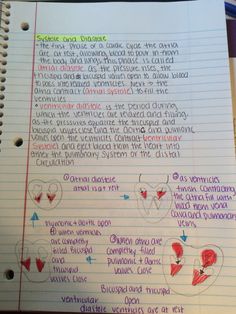 Systole and Diastole
- the first phase of a cardiac cycle the atria
are at rest, allowing blood to pour in from
the body and lungs. this phase is called
atrial diastole. As the pressure rises, the
tricuspid and bicuspid valves open to allow blood
to pass into relaxed ventricles. Next → the
atria contract (atrial systole) to fill the
ventricles
• ventricular diastole is the period during
which the ventricles are relaxed and filling.
as the pressures equalize the tricuspid and
bicuspid valves close and the aortic and pulmonic
valves open the ventricles contract (ventricular
systole) and eject blood from the heart into
enter the pulmonary system or the distal
circulation
① atrial diastole
atria is at rest
④ as ventricles
finish contracting
the atria fill with
blood from vena
cava and pulmonary
veins
pulmonic + aortic open
② when ventricles
are completly
filled bicuspid
and
tricuspid
valves close
③ when atria are
completly filled
pulmonic + aortic
valves close
Bicuspid and tricuspid
open
ventricular
diastole ventricles are at rest